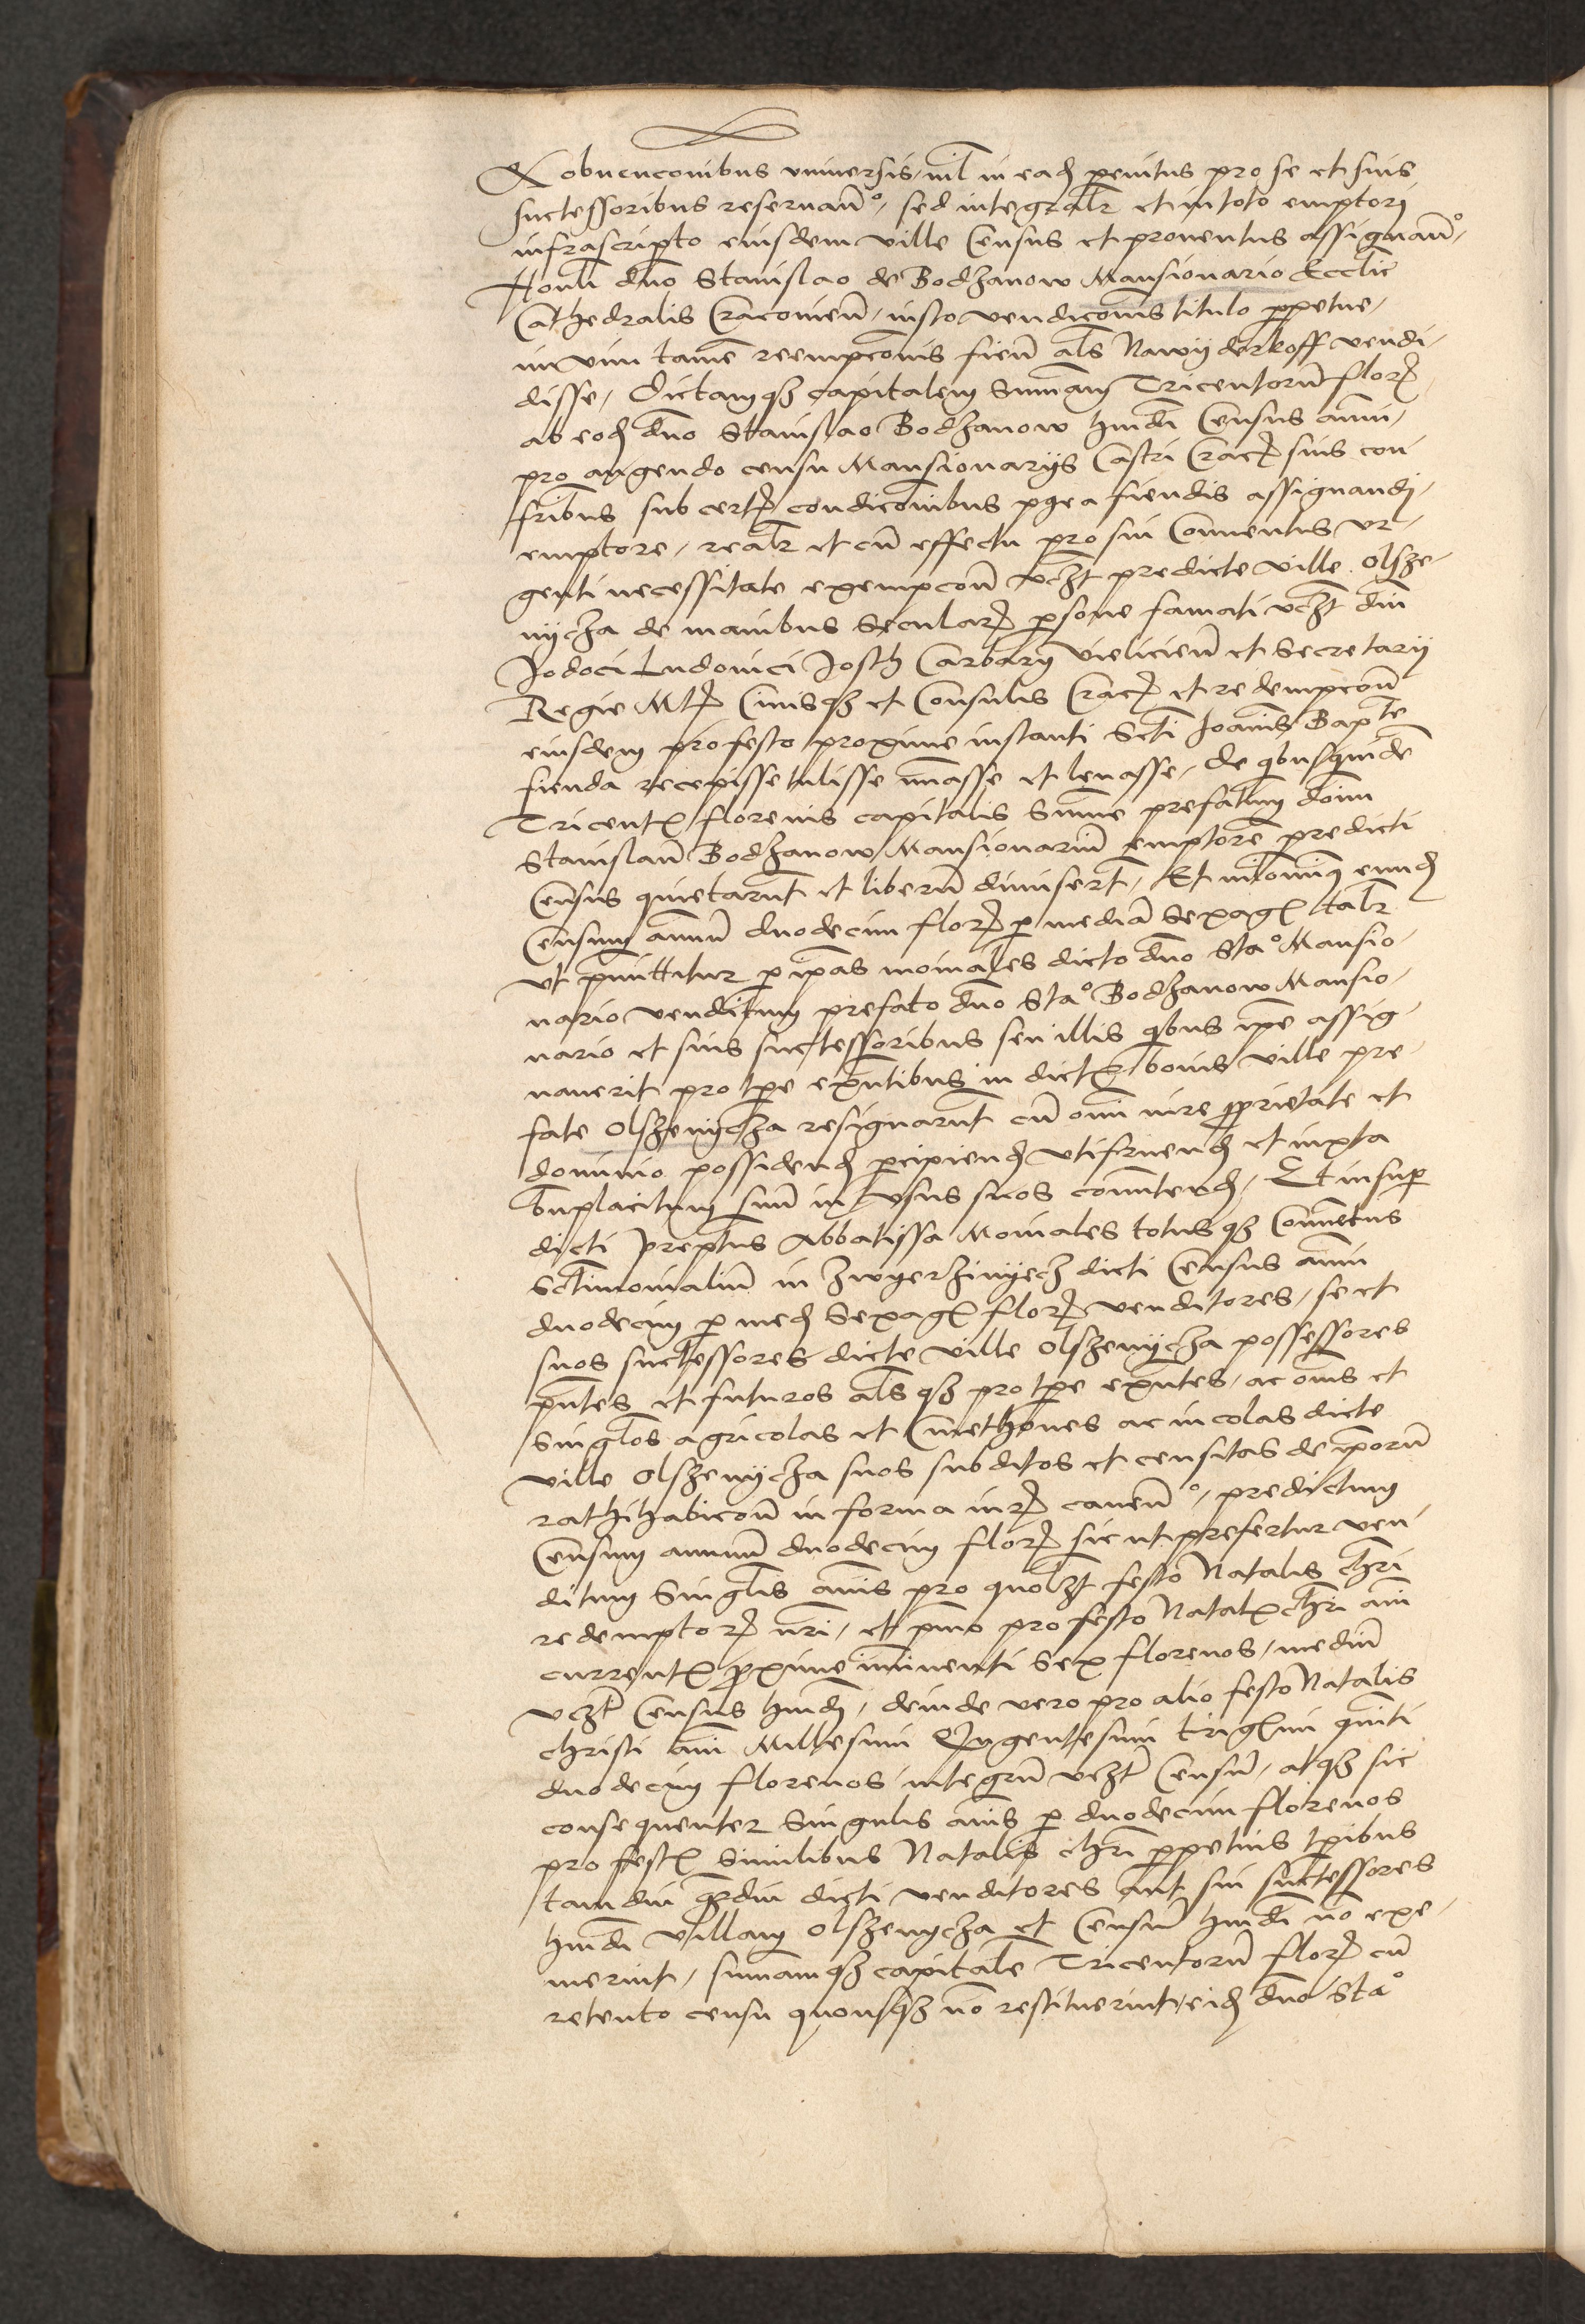 & obuenconibus vniuersis, nil in eadem penitus pro se et suis
successoribus reseruan°, sed integralr et in toto emptori
infrascripto eiusdem ville Census et prouentus assignan°,
Honli dno Stanislao de Bodzanow Mansionario Ecclie
Cathedralis Cracouien, iusto vendiconis titulo perpetue,
in vim tamen reempconis fien als Nawyderkoff vendi,
disse, Dictamqz capitalem Summam Tricentorum floren
ab eodem dno Stanislao Bodzanow hmdi Census annui,
pro augendo censu Mansionarys Castri Crac suis con
fribus sub certis condiconibus postea fiendis assignandi,
emptore, realr et cum effectu pro sui Conuentus vr,
genti necessitate exempcone vczt predicte ville Olsze,
nycza de manibus Secularis persone famati vczt dni
Jodoci Ludouici Josth Carbary Vieliciens et Secretary
Regie Mtis Ciuisqz et Consulis Crac et redempcone
eiusdem pro festo proxime instanti Scti Joannis Bapte
fienda recepisse tulisse numasse et leuasse, de quibusquidem
Tricentis florenis capitalis Summe prefatum dnum
Stanislaum Bodzanow Mansionarium emptorem predicti
Census quietarunt et liberum dimisert, Et nilominus eundem
Censum annuum duodecim floren per mediam Sexagen talr
vt premittitur per ipas moniales dicto dno Sta° Mansio,
nario venditum prefato dno Sta° Bodzanow Mansio,
nario et suis successoribus seu illis quibus ipe assig,
nauerit pro tpe existentibus in dictis bonis ville pre,
fate Olszenycza resignarunt cum omni iure proprietate et
dominio possidend percipiend vtifruend et iuxta
bnplacitum suum in vsus suos conuertend, Et insuper
dicti Preptus Abbatissa Moniales totusqz Conuentus
Sctimonialium in Zwyerzinyecz dicti Census annui
duodecim per med Sexagen floren venditores, se et
suos successores dicte ville Olszenycza possessores
pntes et futuros alsqz pro tpe existentes, ac omnes et
singlos agricolas et Cmethones ac incolas dicte
ville Olszenycza suos subditos et censitas de iporum
rathihabicone in forma iuris cauen°, predictum
Censum annuum duodecim floren sicut prefertur ven
ditum Singlis annis pro quolzt festo Natalis Chri
redemptoris nri, et pmo pro festo Natalis Chri anni
currentis proxime imminenti Sex florenos, medium
vczt Census hmdi, deinde vero pro alio festo Natalis
Christi anni Millesimi Quingentesimi trigesimi quinti
duodecim florenos integrum vczt Censum, atqz sic
consequenter Singulis annis per duodecim florenos
pro festis Similibus Natalis Chri perpetuis tpibus
tam diu quamdiu dicti venditores aut sui successores
hmdi villam Olszenycza et Censum hmdi non exe,
merint, summamqz capitalem Tricentorum floren cum
retento censu quousqz non restituerint, eidem dno Sta°